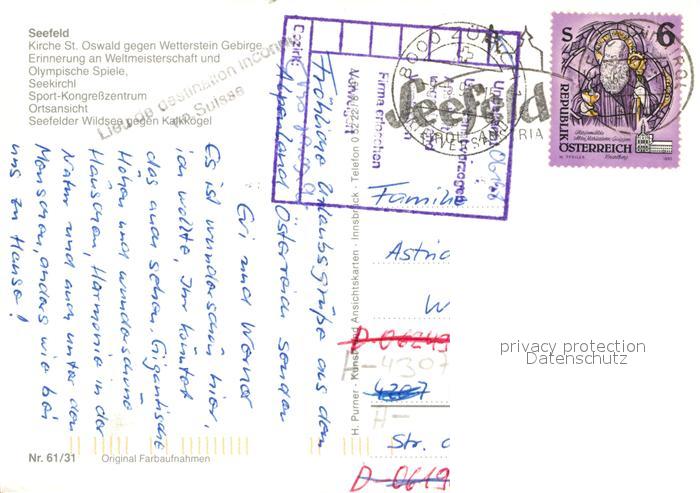 Seefeld
Kirche St. Oswald gegen Wetterstein Gebirge
Erinnerung an Weltmeisterschaft und
Olympische Spiele,
Seekirchl
Sport-Kongreßzentrum
Ortsansicht
Seefelder Wildsee gegen Karkogel
Fröhliche Urlaubsgrüße aus dem
Alpenland Österreich senden
Evi und Werner
Es ist wunderschön hier,
ich wollte, Ihr könntet
das auch sehen. Gigantische
Höhen und wunderschöne
Häuschen, Harmonie in der
Natur und auch unter den
Menschen, anders wie bei
uns zu Hause!
Nr. 61/31
Original Farbaufnahmen
H. Purner - Kunst- und Ansichtskarten - Innsbruck - Telefon 0 52 22
Bezirk
Firma erloschen
Verzogen
Seefeld
8000
S 6
REPUBLIK
ÖSTERREICH
Familie
Astrid
W
D-06249
H-4307
4307
H-
Str.
D-0619
privacy protection
Datenschutz